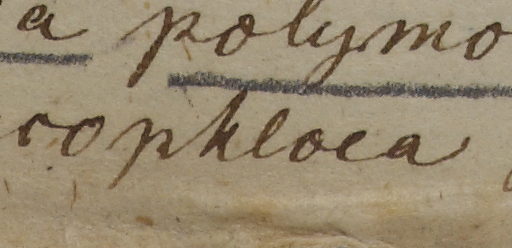 a polymo
rophloea